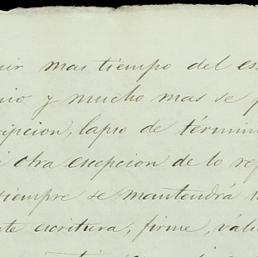 uir mas tiempo del es
nio y mucho mas se p
ripcion, lapso de términ
otra escepcion de lo re
siempre se mantendrá
te escritura, firme, váli